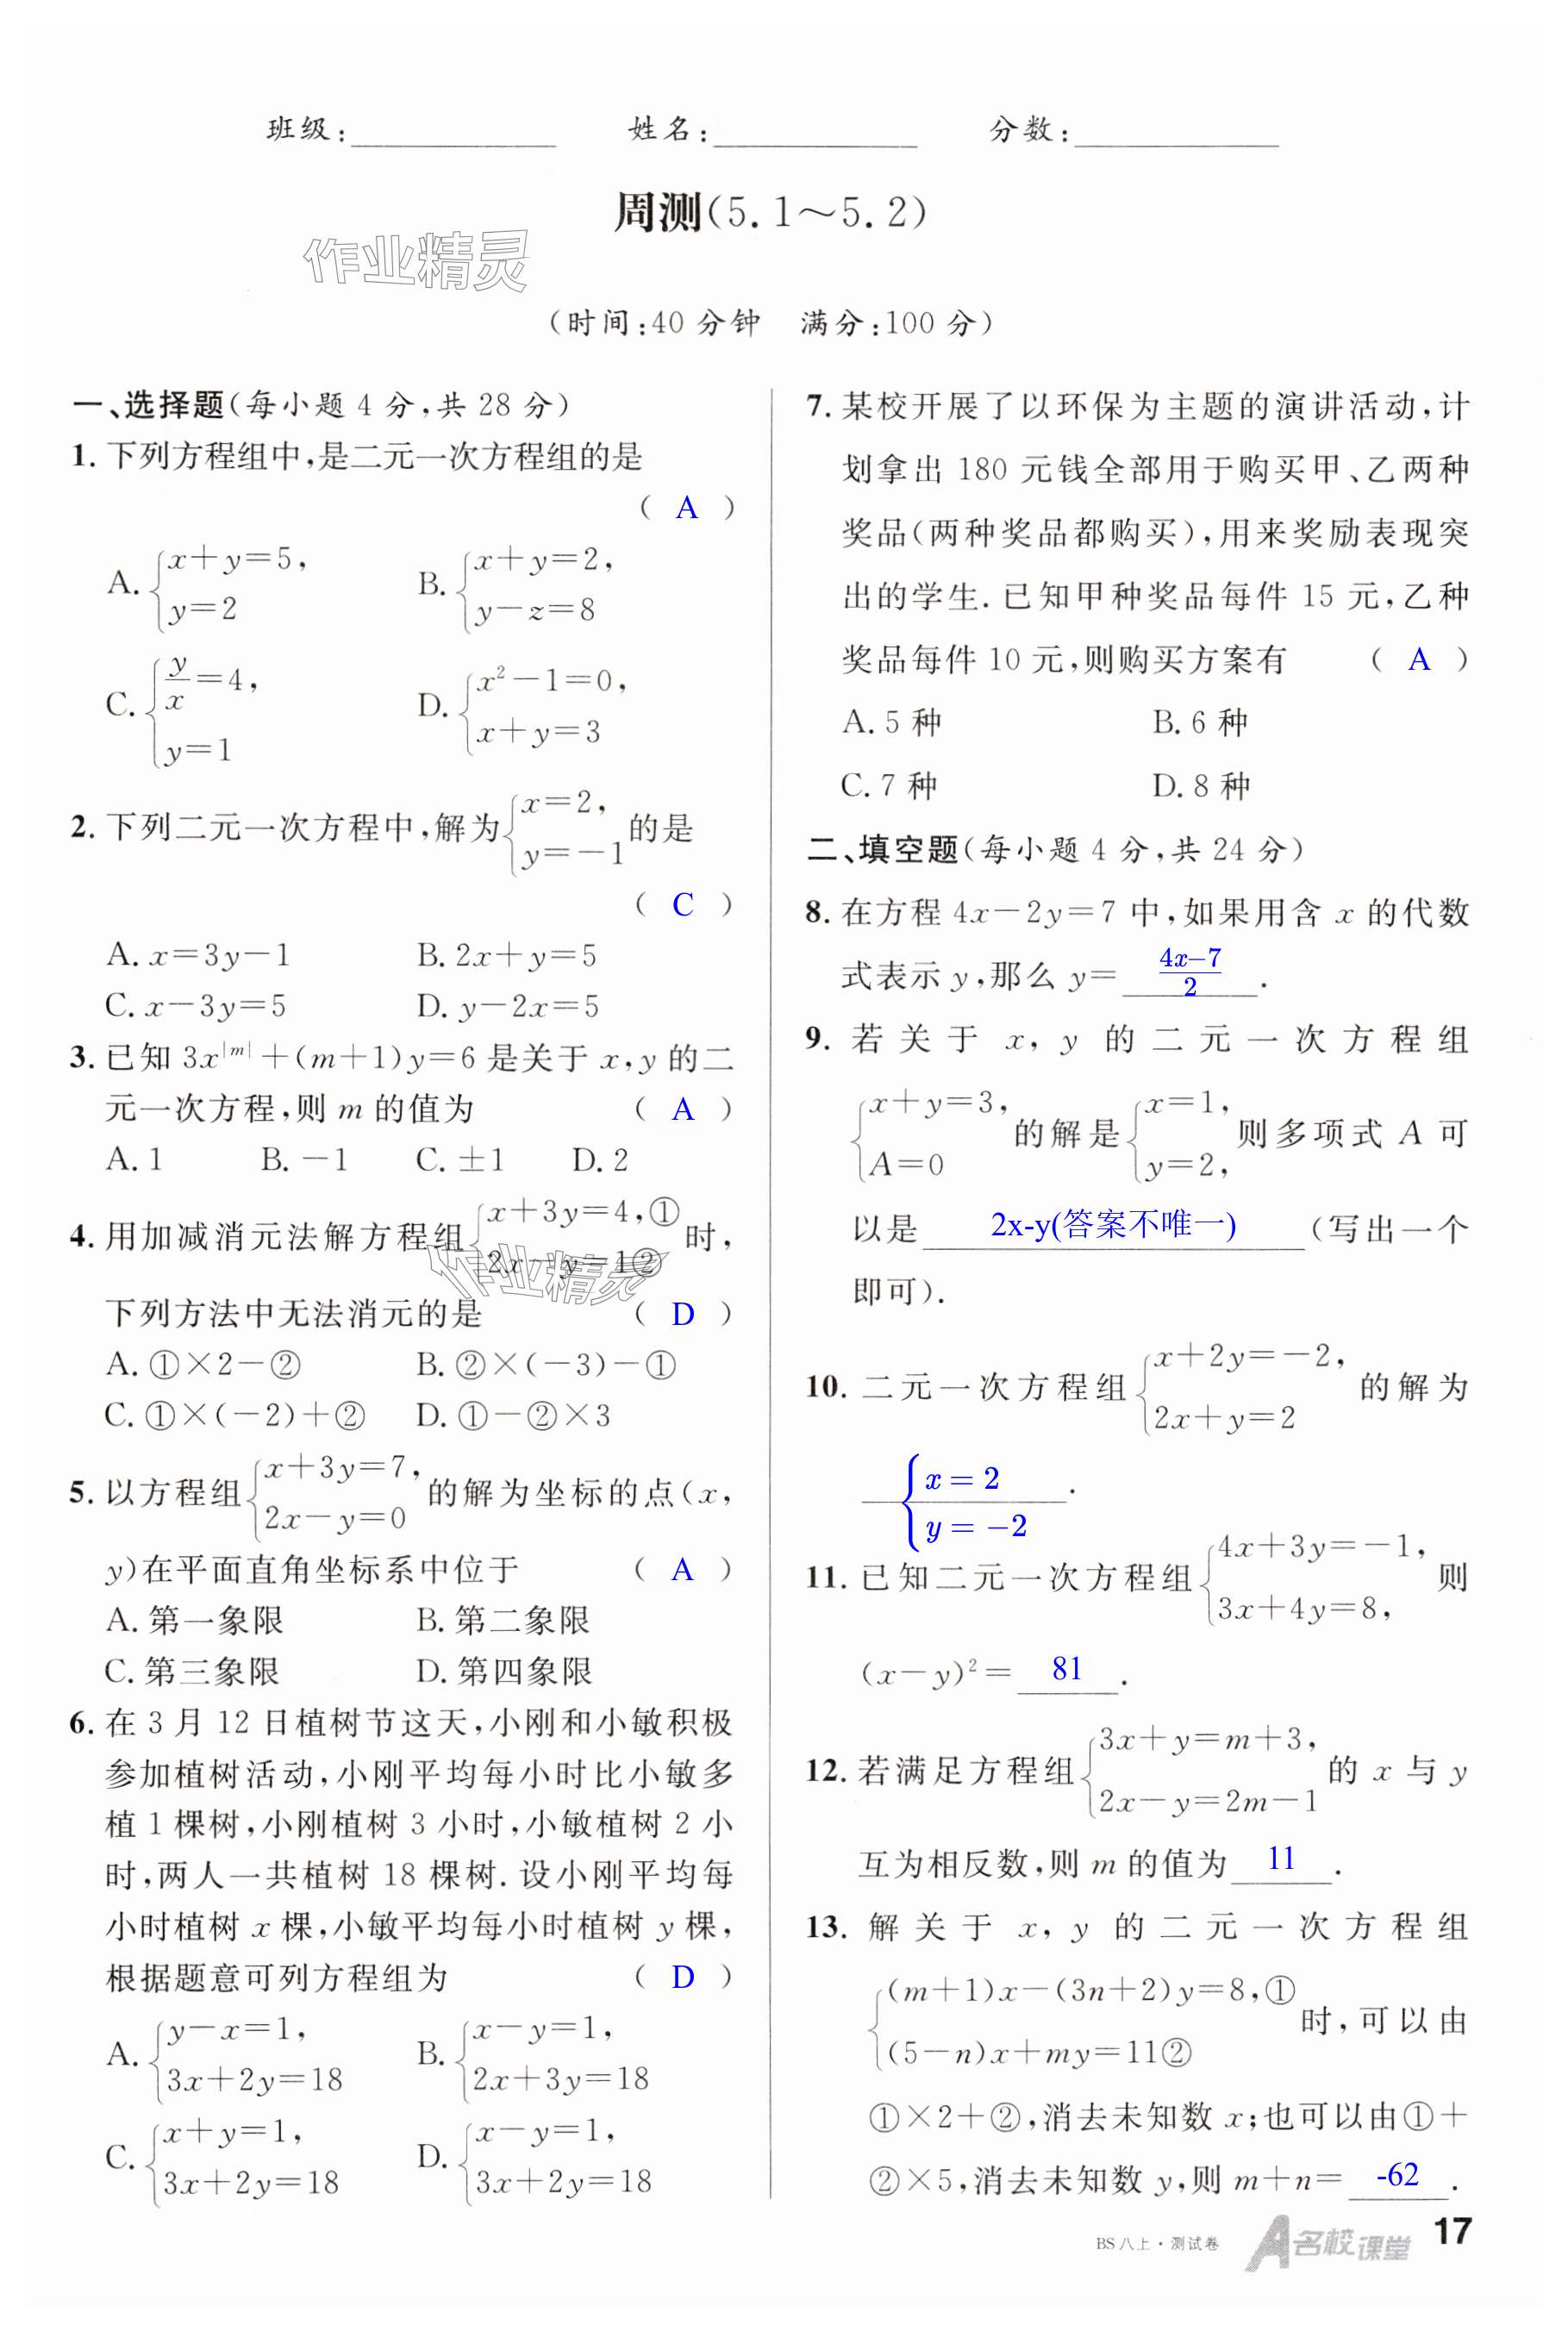 班级:____________ 姓名:____________ 分数:____________
周测(5.1～5.2)
作业精灵
(时间:40分钟 满分:100分)
一、选择题(每小题4分,共28分)
1. 下列方程组中,是二元一次方程组的是
( A )
A. {x+y=5, y=2 B. {x+y=2, y-z=8
C. {y/x=4, y=1 D. {x²-1=0, x+y=3
2. 下列二元一次方程中,解为{x=2, y=-1的是
( C )
A. x=3y-1 B. 2x+y=5
C. x-3y=5 D. y-2x=5
3. 已知 3x^|m|+(m+1)y=6 是关于 x,y 的二
元一次方程,则 m 的值为 ( A )
A. 1 B. -1 C. ±1 D. 2
4. 用加减消元法解方程组{x+3y=4,① 2x-y=1②时,
作业精灵
下列方法中无法消元的是 ( D )
A. ①×2-② B. ②×(-3)-①
C. ①×(-2)+② D. ①-②×3
5. 以方程组{x+3y=7, 2x-y=0的解为坐标的点(x,
y)在平面直角坐标系中位于 ( A )
A. 第一象限 B. 第二象限
C. 第三象限 D. 第四象限
6. 在 3 月 12 日植树节这天,小刚和小敏积极
参加植树活动,小刚平均每小时比小敏多
植 1 棵树,小刚植树 3 小时,小敏植树 2 小
时,两人一共植树 18 棵树. 设小刚平均每
小时植树 x 棵,小敏平均每小时植树 y 棵,
根据题意可列方程组为 ( D )
A. {y-x=1, 3x+2y=18 B. {x-y=1, 2x+3y=18
C. {x+y=1, 3x+2y=18 D. {x-y=1, 3x+2y=18
7. 某校开展了以环保为主题的演讲活动,计
划拿出 180 元钱全部用于购买甲、乙两种
奖品(两种奖品都购买),用来奖励表现突
出的学生. 已知甲种奖品每件 15 元,乙种
奖品每件 10 元,则购买方案有 ( A )
A. 5 种 B. 6 种
C. 7 种 D. 8 种
二、填空题(每小题4分,共24分)
8. 在方程 4x-2y=7 中,如果用含 x 的代数
式表示 y,那么 y=(4x-7)/2.
9. 若关于 x, y 的二元一次方程组
{x+y=3, A=0的解是{x=1, y=2,则多项式 A 可
以是 2x-y(答案不唯一) (写出一个
即可).
10. 二元一次方程组{x+2y=-2, 2x+y=2的解为
{x=2 y=-2.
11. 已知二元一次方程组{4x+3y=-1, 3x+4y=8,则
(x-y)²= 81 .
12. 若满足方程组{3x+y=m+3, 2x-y=2m-1的 x 与 y
互为相反数,则 m 的值为 11 .
13. 解关于 x, y 的二元一次方程组
{(m+1)x-(3n+2)y=8,① (5-n)x+my=11②时,可以由
①×2+②,消去未知数 x;也可以由①+
②×5,消去未知数 y,则 m+n= -62 .
BS八上·测试卷 A名校课堂 17